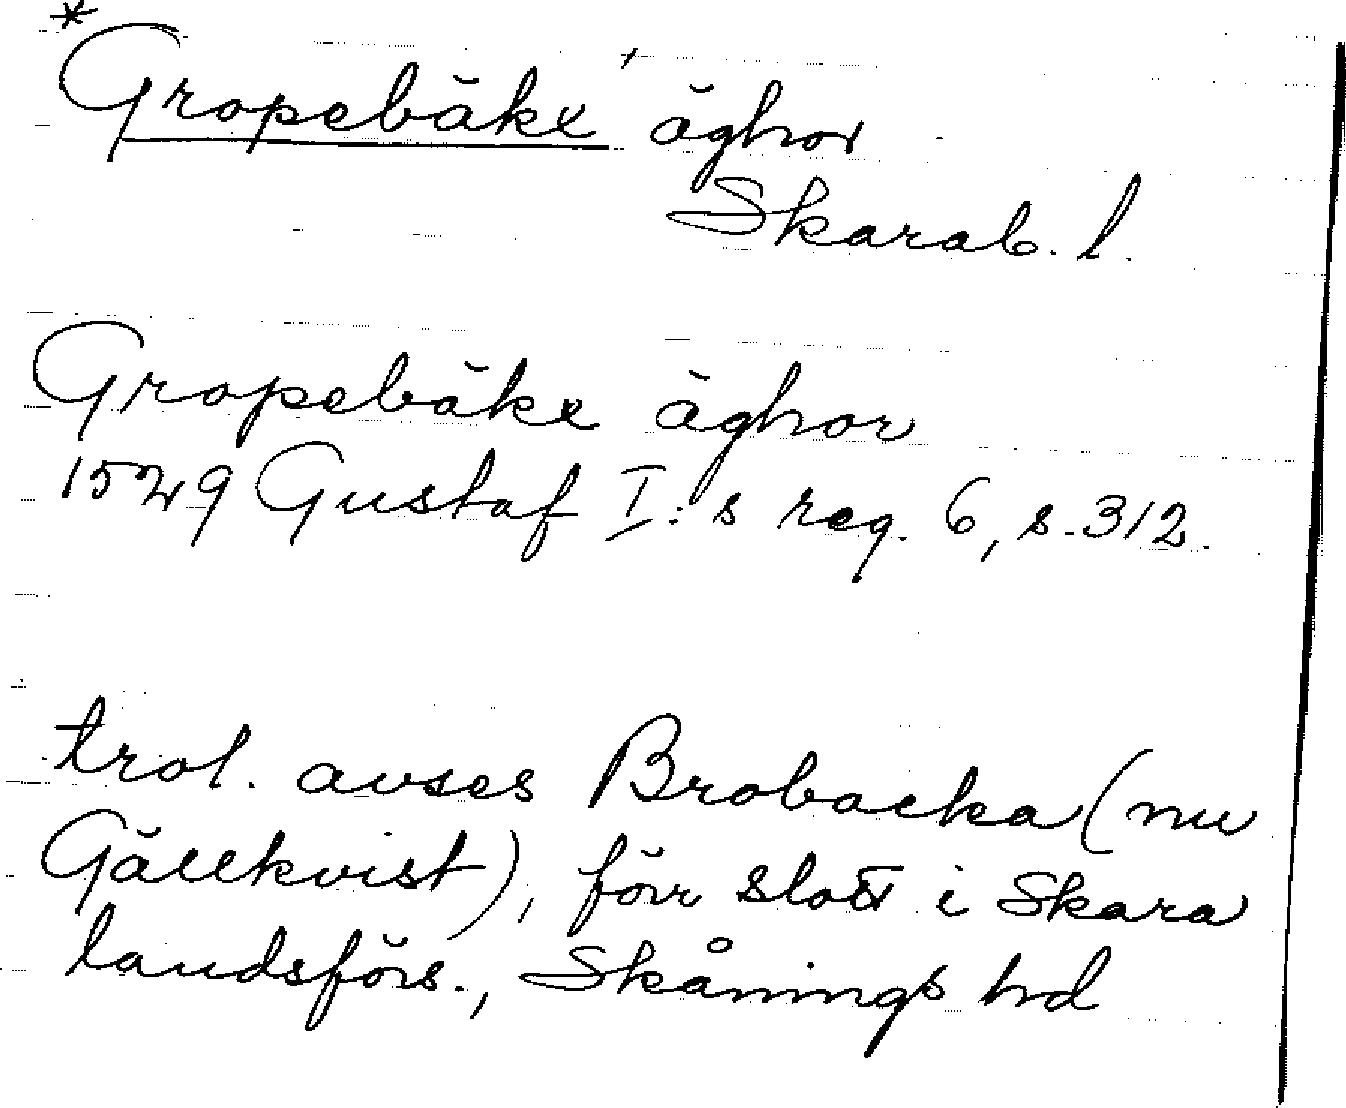 *Gropebäke ' äghor
Skarab. l.
Gropebäke äghor
1529 Gustaf I:s reg. 6, s. 312.
trol. avses Brobacka (nu
Gällkvist), förr slott i Skara
landsförs., Skånings hd